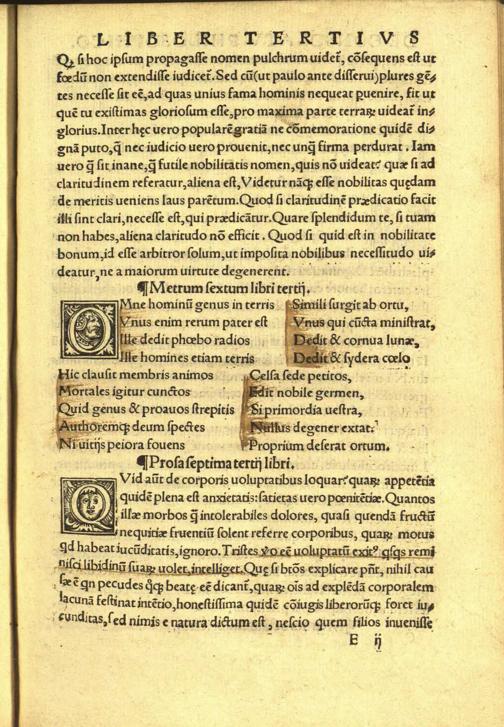 LIBER TERTIVS
Q̨ si hoc ipsum propagasse nomen pulchrum uideť, cōsequens est ut
fœdū non extendisse iudiceť. Sed cū(ut paulo ante disserui)plures gē-
tes necesse sit eē,ad quas unius fama hominis nequeat puenire, fit ut
quē tu existimas gloriosum esse,pro maxima parte terraꝝ uideať in-
glorius.Inter hęc uero popularē gratiā ne cōmemoratione quidē di-
gnā puto,q̄ nec iudicio uero prouenit,nec unq̄ firma perdurat. Iam
uero q̄ sit inane,q̄ futile nobilitatis nomen,quis nō uideať? quæ si ad
claritudinem referatur,aliena est,Videtur nāq; esse nobilitas quędam
de meritis ueniens laus parētum.Quod si claritudinē prædicatio facit
illi sint clari,necesse est,qui prædicātur.Quare splendidum te, si tuam
non habes,aliena claritudo nō efficit. Quod si quid est in nobilitate
bonum,id esse arbitror solum,ut imposita nobilibus necessitudo ui-
deatur,ne a maiorum uirtute degenerent.
¶Metrum sextum libri tertij.
OMne hominū genus in terris Simili surgit ab ortu,
Vnus enim rerum pater est Vnus qui cūcta ministrat,
Ille dedit phœbo radios Dedit & cornua lunæ,
Ille homines etiam terris Dedit & sydera cœlo
Hic clausit membris animos Celsa sede petitos,
Mortales igitur cunctos Edit nobile germen,
Quid genus & proauos strepitis Si primordia uestra,
Authoremq; deum spectes Nullus degener extat?
Ni uitijs peiora fouens Proprium deserat ortum.
¶Prosa septima tertij libri.
QVid aūt de corporis uoluptatibus loquar? quaꝝ appetētia
quidē plena est anxietatis:satietas uero pœnitētiæ.Quantos
illæ morbos q̄ intolerabiles dolores, quasi quendā fructū
nequitiæ fruentiū solent referre corporibus, quaꝝ motus
qd habeat iucūditatis,ignoro.Tristes ṽo eē uoluptatū exit⁹ qsqs remi
nisci libidinū suaꝝ uolet,intelliget.Quę si btōs explicare pn̄t, nihil cau
sæ ē qn pecudes q̄q; beatę eē dicant̄,quaꝝ oīs ad explēdā corporalem
lacunā festinat intētio,honestissima quidē cōiugis liberorūq; foret iu-
cunditas,sed nimis e natura dictum est, nescio quem filios inuenisse
E ij